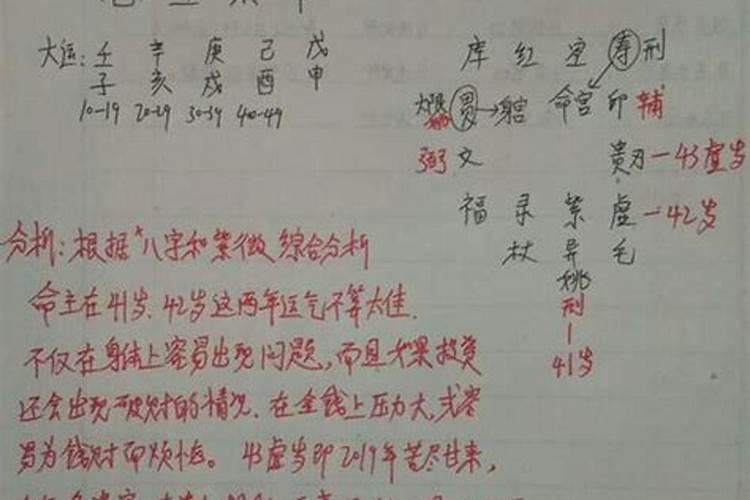 大运: 壬 辛 庚 己 戊
子 亥 戌 酉 申
10-19 20-29 30-39 40-49
库 红 空 寿 刑
大限 昌→ 命宫 印 辅
弼 文 贵 刃—43虚岁
福 录 紫 虚—42岁
杖 异 毛
姚
刑
41岁
分析: 根据"八字和紫微综合分析
命主在41岁、42岁这两年运气不算太佳.
不仅在身体上容易出现问题, 而且如果投资
还会出现破财的情况. 在金钱上压力大, 或容
易为钱财而烦恼。 43虚岁即2019年苦尽甘来,